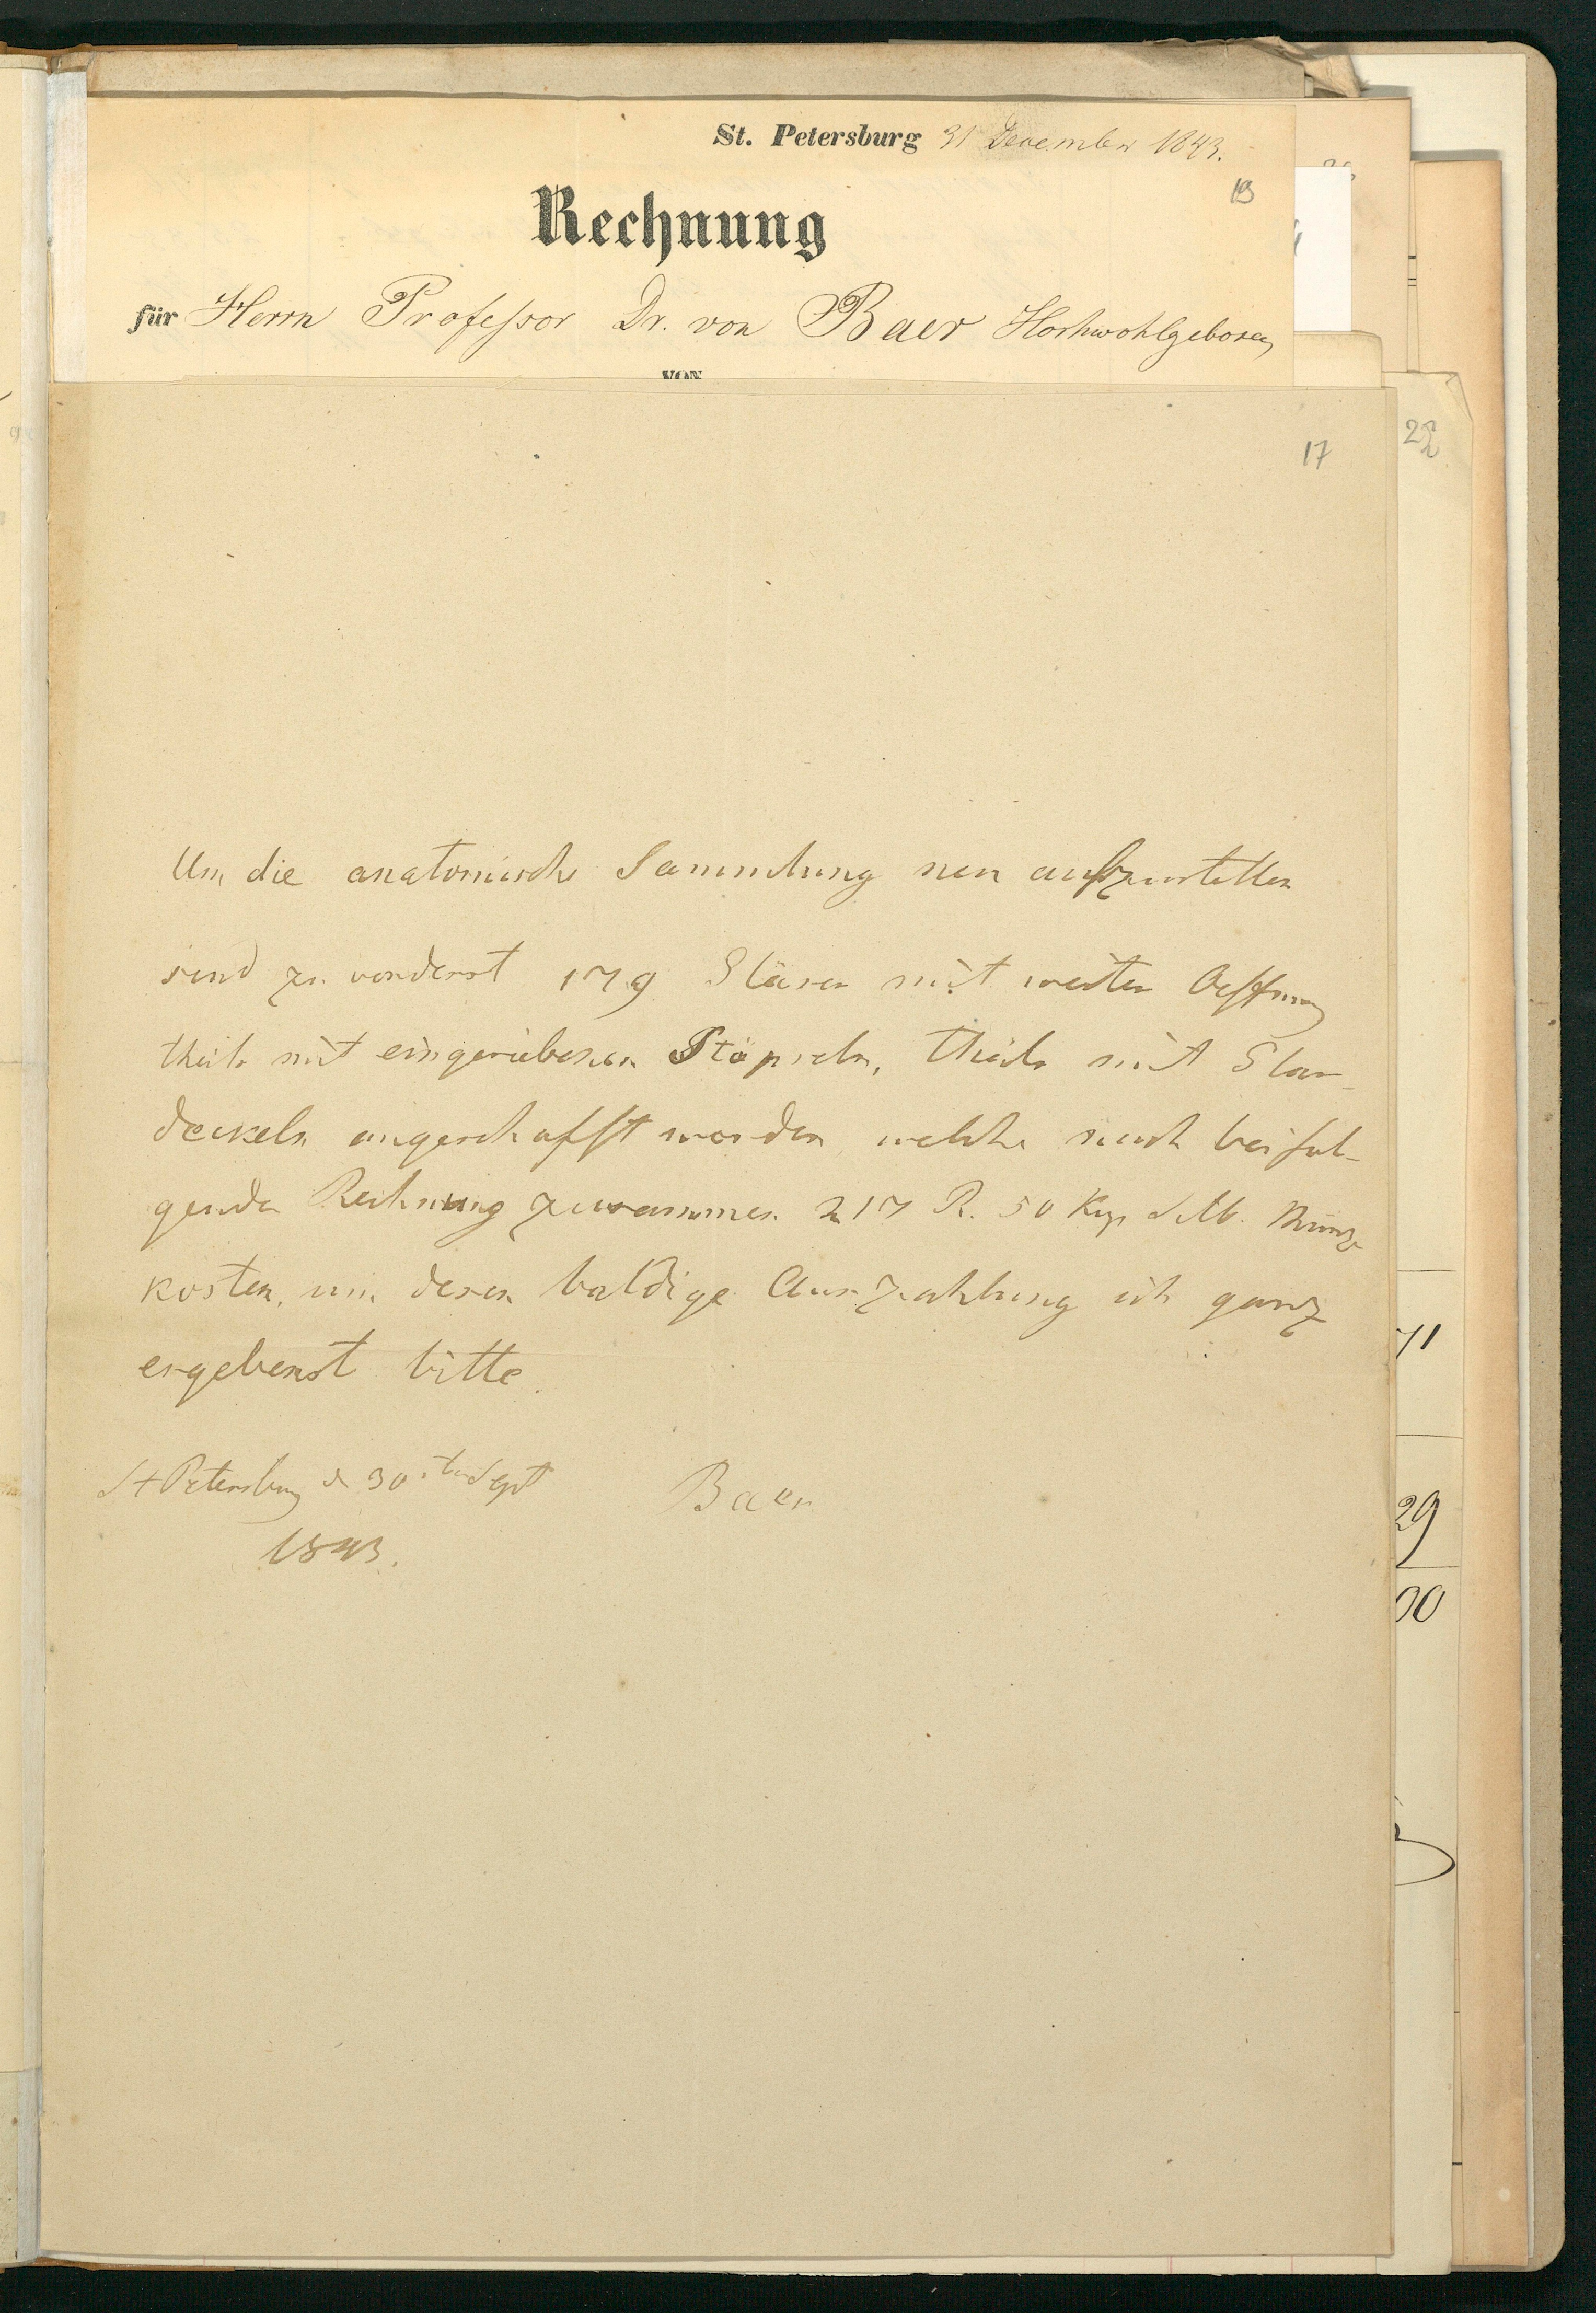 St. Petersburg 31 December 1843.
19
Rechnung
für Herrn Professor Dr. von Baer Hochwohlgeboren
VON
17
22
Um die anatomische Sammlung neu aufzustellen
sind zu vorderst 179 Gläser mit weiter Oeffnung
theils mit eingeriebenen Stöpseln, theils mit Glas-
deckeln angeschafft worden, welche nach beifol-
gender Rechnung zusammen 217 R. 50 Kop Silb. Münze
kosten, um deren baldige Auszahlung ich ganz
ergebenst bitte.
St Petersburg d 30sten Sept
1843.
Baer
71
29
00